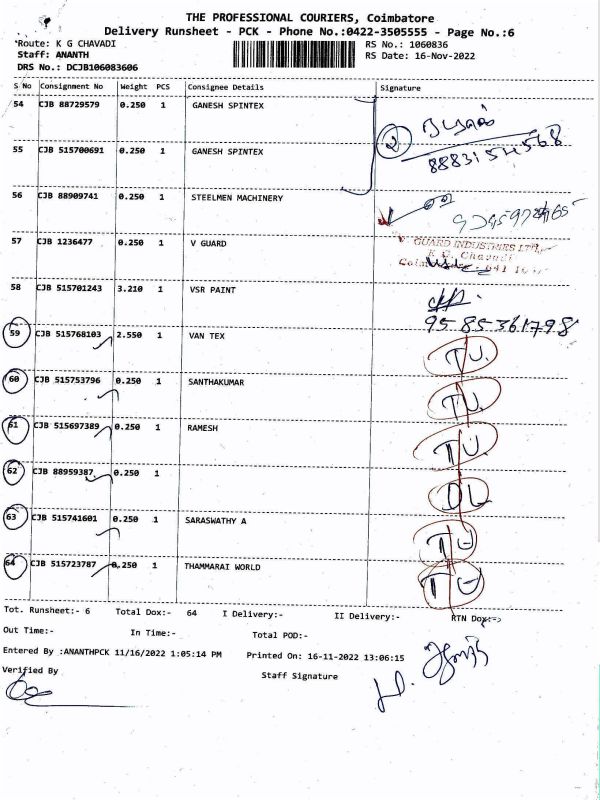 THE PROFESSIONAL COURIERS, Coimbatore
Delivery Runsheet - PCK - Phone No.:0422-3505555 - Page No.:6
Route: K G CHAVADI RS No.: 1060836
Staff: ANANTH RS Date: 16-Nov-2022
DRS No.: DCJB106083606
S No Consignment No Weight PCS Consignee Details Signature
54 CJB 88729579 0.250 1 GANESH SPINTEX
2
55 CJB 515700691 0.250 1 GANESH SPINTEX
8883154568
56 CJB 88909741 0.250 1 STEELMEN MACHINERY
57 CJB 1236477 0.250 1 V GUARD
V. GUARD INDUSTRIES LTD.,
K G. Chavadi
58 CJB 515701243 3.210 1 VSR PAINT
9585361798
59 CJB 515768103 2.550 1 VAN TEX TU.
60 CJB 515753796 0.250 1 SANTHAKUMAR TU.
61 CJB 515697389 0.250 1 RAMESH TU.
62 CJB 88959387 0.250 1 DL
63 CJB 515741601 0.250 1 SARASWATHY A TU
64 CJB 515723787 0.250 1 THAMMARAI WORLD TU
Tot. Runsheet:- 6 Total Dox:- 64 I Delivery:- II Delivery:- RTN Dox:->
Out Time:- In Time:- Total POD:-
Entered By :ANANTHPCK 11/16/2022 1:05:14 PM Printed On: 16-11-2022 13:06:15
Verified By Staff Signature